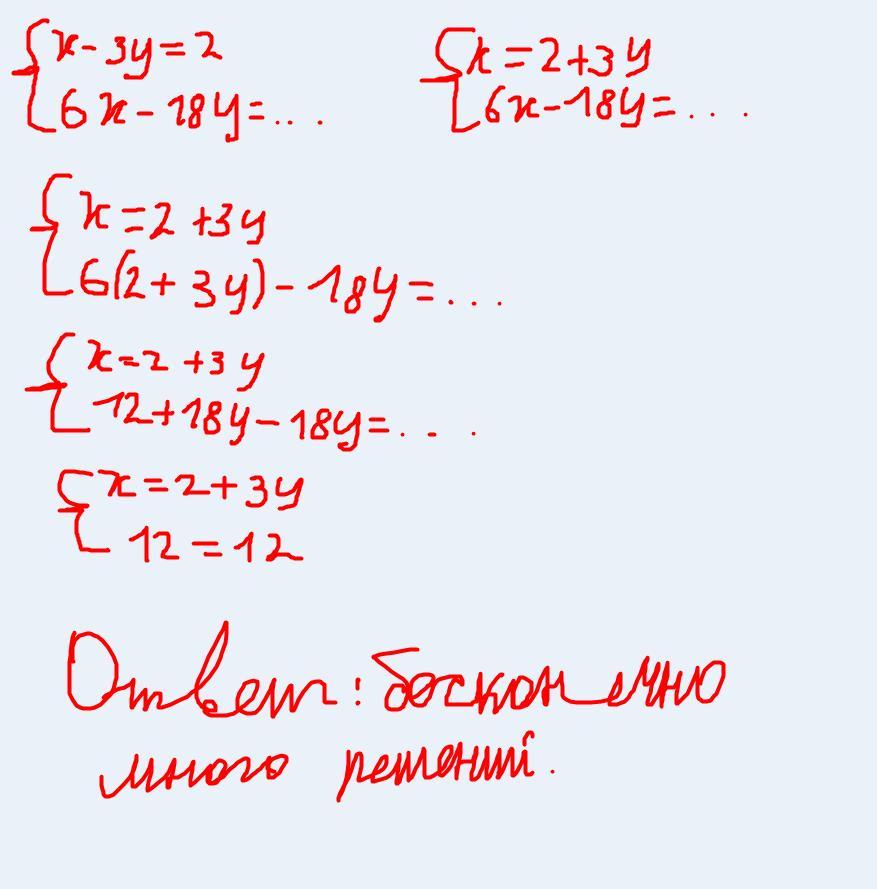 x - 3y = 2
6x - 18y = ...
x = 2 + 3y
6x - 18y = ...
x = 2 + 3y
6(2 + 3y) - 18y = ...
x = 2 + 3y
12 + 18y - 18y = ...
x = 2 + 3y
12 = 12
Ответ: бесконечно
много решений.